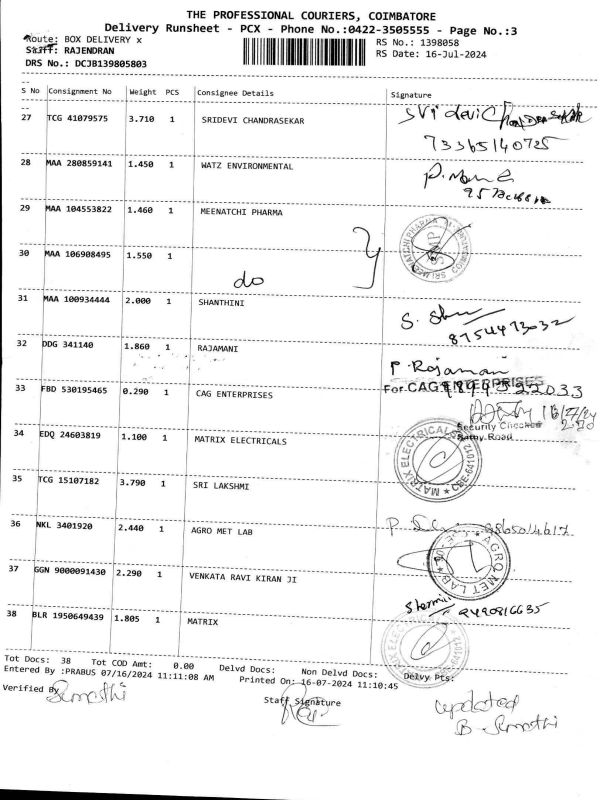 THE PROFESSIONAL COURIERS, COIMBATORE
Delivery Runsheet - PCX - Phone No.:0422-3505555 - Page No.:3
Route: BOX DELIVERY x
RS No.: 1398058
Staff: RAJENDRAN
RS Date: 16-Jul-2024
DRS No.: DCJB139805803
S No Consignment No Weight PCS Consignee Details Signature
27 TCG 41079575 3.710 1 SRIDEVI CHANDRASEKAR Sridevi
73365140725
28 MAA 280859141 1.450 1 WATZ ENVIRONMENTAL
29 MAA 104553822 1.460 1 MEENATCHI PHARMA
30 MAA 106908495 1.550 1 do
31 MAA 100934444 2.000 1 SHANTHINI
8754473032
32 DDG 341140 1.860 1 RAJAMANI P. Rajamani
33 FBD 530195465 0.290 1 CAG ENTERPRISES For CAG ENTERPRISES
Security Checked
34 EDQ 24603819 1.100 1 MATRIX ELECTRICALS MATRIX ELECTRICALS
35 TCG 15107182 3.790 1 SRI LAKSHMI
36 NKL 3401920 2.440 1 AGRO MET LAB AGRO MET LAB
37 GGN 9000091430 2.290 1 VENKATA RAVI KIRAN JI
38 BLR 1950649439 1.805 1 MATRIX
Tot Docs: 38 Tot COD Amt: 0.00 Delvd Docs: Non Delvd Docs: Delvy Pts:
Entered By :PRABUS 07/16/2024 11:11:08 AM Printed On: 16-07-2024 11:10:45
Verified By
Staff Signature
updated